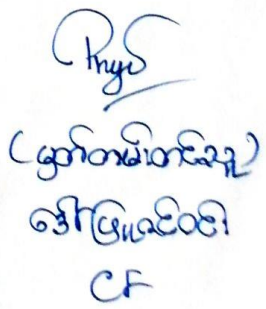 (မှတ်တမ်းတင်သူ)
ဒေါ်ဖြူဇင်ဝင်း
CF